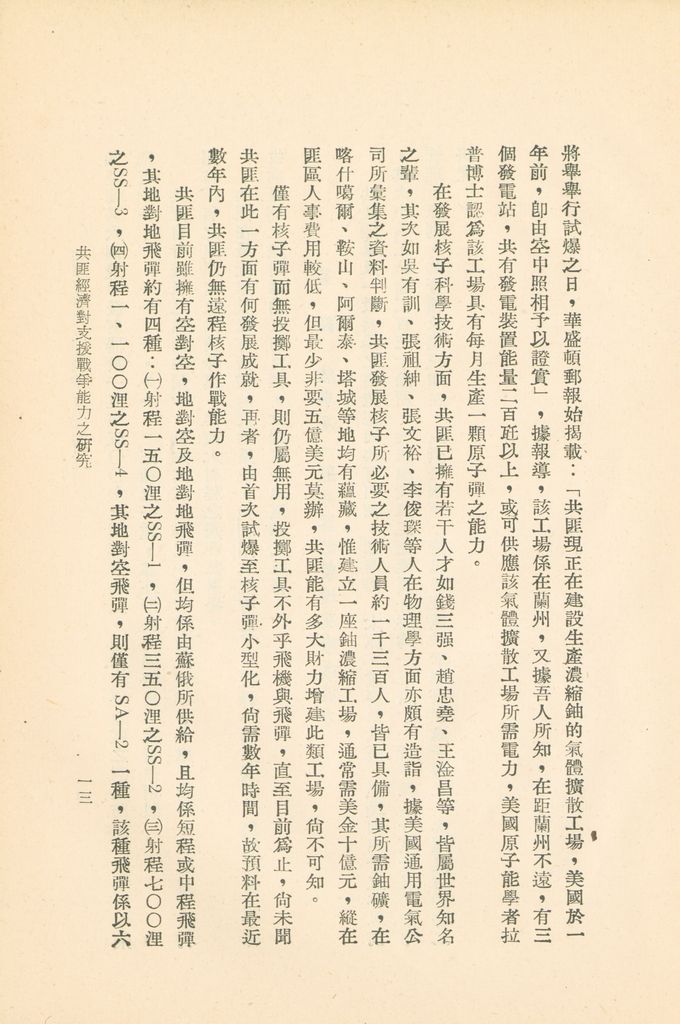 將舉舉行試爆之日，華盛頓郵報始揭載：「共匪現正在建設生產濃縮鈾的氣體擴散工場，美國於一
年前，卽由空中照相予以證實」，據報導，該工場係在蘭州，又據吾人所知，在距蘭州不遠，有三
個發電站，共有發電裝置能量二百瓩以上，或可供應該氣體擴散工場所需電力，美國原子能學者拉
普博士認爲該工場具有每月生產一顆原子彈之能力。
在發展核子科學技術方面，共匪已擁有若干人才如錢三强、趙忠堯、王淦昌等，皆屬世界知名
之輩，其次如吳有訓、張祖紳、張文裕、李俊琛等人在物理學方面亦頗有造詣，據美國通用電氣公
司所彙集之資料判斷，共匪發展核子所必要之技術人員約一千三百人，皆已具備，其所需鈾礦，在
喀什噶爾、鞍山、阿爾泰、塔城等地均有蘊藏，惟建立一座鈾濃縮工場，通常需美金十億元，縱在
匪區人事費用較低，但最少非要五億美元莫辦，共匪能有多大財力增建此類工場，尙不可知。
僅有核子彈而無投擲工具，則仍屬無用，投擲工具不外乎飛機與飛彈，直至目前爲止，尙未聞
共匪在此一方面有何發展成就，再者，由首次試爆至核子彈小型化，尙需數年時間，故預料在最近
數年內，共匪仍無遠程核子作戰能力。
共匪目前雖擁有空對空，地對空及地對地飛彈，但均係由蘇俄所供給，且均係短程或中程飛彈
，其地對地飛彈約有四種：㈠射程一五〇浬之SS—1，㈡射程三五〇浬之SS—2，㈢射程七〇〇浬
之SS—3，㈣射程一、一〇〇浬之SS—4，其地對空飛彈，則僅有 SA—2 一種，該種飛彈係以六
共匪經濟對支援戰爭能力之硏究
一三